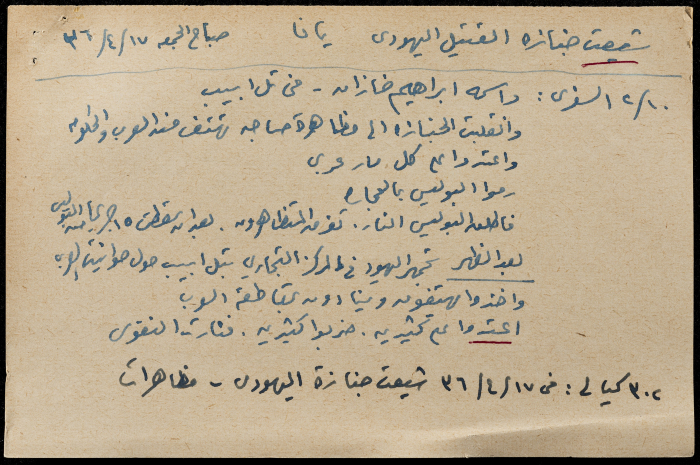 شيعت جنازة القتيل اليهودي يافا صباح الجمعة ١٧/٤/٣٦
٢/١٠ السفرى: واسمه ابراهيم خازان - في تل ابيب
وانقلبت الجنازة الى مظاهرة صاخبة تهتف ضد العرب والحكومة
واعتدوا على كل مار عربي
رموا البوليس بالحجارة
فاطلق البوليس النار. تفرق المتظاهرون. بعد ان سقطت ١٥ جريحا من البوليس
بعد الظهر تجمهر اليهود في المركز التجاري بتل ابيب حول حوانيت العرب
واخذوا يهتفون وينادون بمقاطعة العرب
اعتدوا على كثيرين. ضربوا كثيرين. فثارت النفوس
٣٠٢ كيالي: في ١٧/٤/٣٦ شيعت جنازة اليهودي - مظاهرات